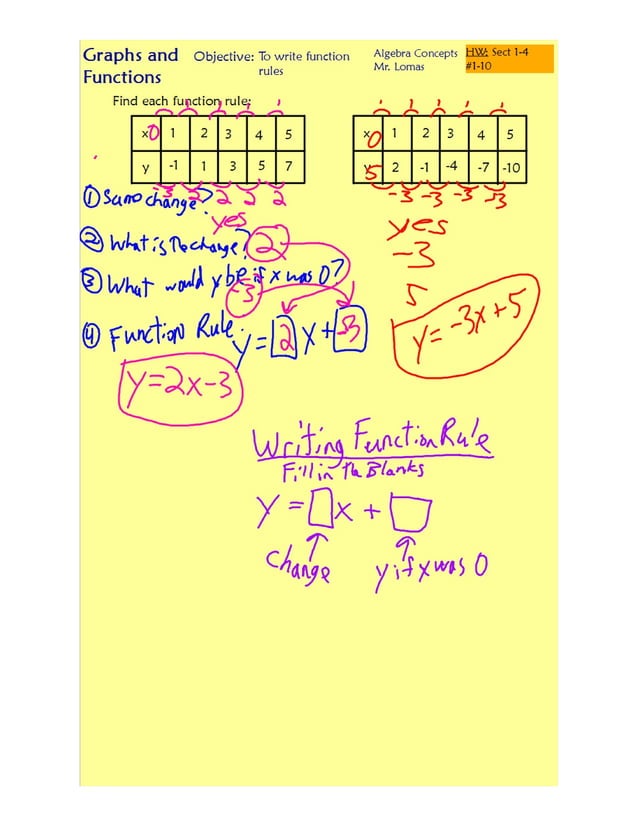 Graphs and Functions
Objective: To write function rules
Algebra Concepts
Mr. Lomas
HW: Sect 1-4
#1-10
Find each function rule:
1 1 1 1 1
x 0 1 2 3 4 5
y -1 1 3 5 7
-3 2 2 2 2 2
1 1 1 1 1
x 0 1 2 3 4 5
y 5 2 -1 -4 -7 -10
-3 -3 -3 -3
① Same change?
yes
② What is the change? 2
③ What would y be if x was 0?
-3
④ Function Rule.
y = 2 x + -3
y=2x-3
yes
-3
5
y=-3x+5
Writing Function Rule
Fill in the Blanks
y = x +
change
y if x was 0